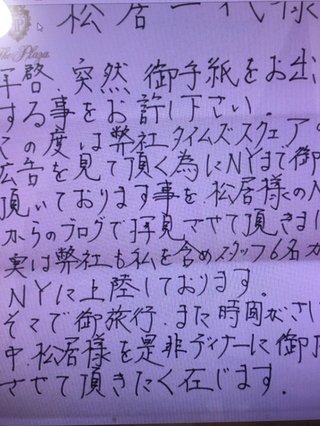 松居一代様
The Plaza
拝啓、突然 御手紙をお出し
する事をお許し下さい。
この度は弊社、タイムズスクェアの
広告を見て頂く為にNYまで御
頂いております事を、松居様のN
からのブログで拝見させて頂きまし
実は弊社も私を含めスタッフ6名が
NYに上陸しております。
そこで御旅行、また時間な
中、松居様を是非ディナーに御
させて頂きたく存じます。